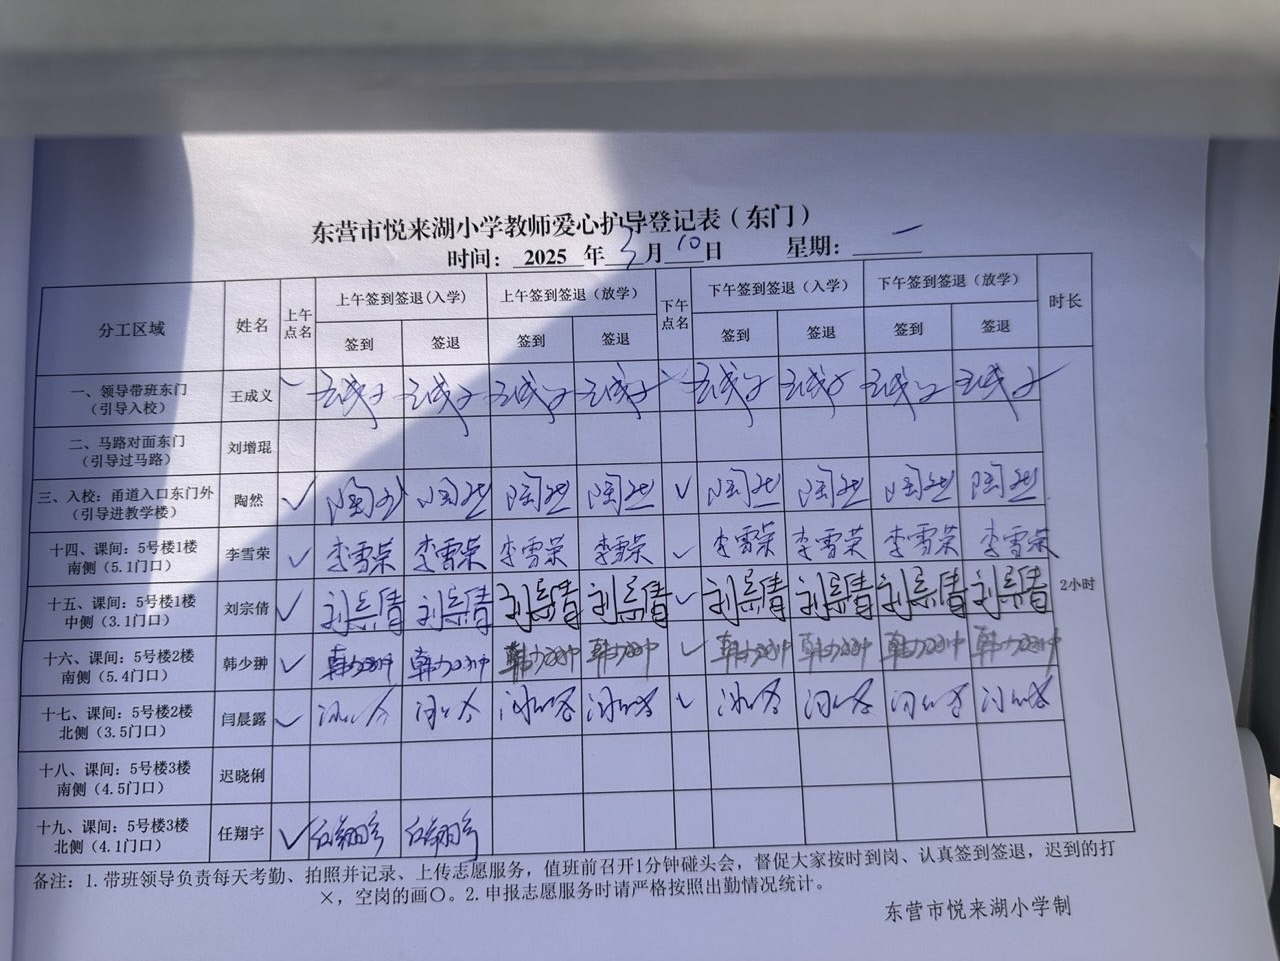 东营市悦来湖小学教师爱心护导登记表（东门）
时间： 2025 年 3 月 10 日 星期： 一
分工区域 姓名 上午点名 上午签到签退(入学) 上午签到签退（放学） 下午点名 下午签到签退（入学） 下午签到签退（放学） 时长
签到 签退 签到 签退 签到 签退 签到 签退
一、领导带班东门（引导入校） 王成义 ✓ 王成义 王成义 王成义 王成义 ✓ 王成义 王成义 王成义 王成义
二、马路对面东门（引导过马路） 刘增琨
三、入校：甬道入口东门外（引导进教学楼） 陶然 ✓ 陶然 陶然 陶然 陶然 ✓ 陶然 陶然 陶然 陶然
十四、课间：5号楼1楼南侧（5.1门口） 李雪荣 ✓ 李雪荣 李雪荣 李雪荣 李雪荣 ✓ 李雪荣 李雪荣 李雪荣 李雪荣
十五、课间：5号楼1楼中侧（3.1门口） 刘宗倩 ✓ 刘宗倩 刘宗倩 刘宗倩 刘宗倩 ✓ 刘宗倩 刘宗倩 刘宗倩 刘宗倩 2小时
十六、课间：5号楼2楼南侧（5.4门口） 韩少翀 ✓ 韩少翀 韩少翀 韩少翀 韩少翀 ✓ 韩少翀 韩少翀 韩少翀 韩少翀
十七、课间：5号楼2楼北侧（3.5门口） 闫晨露 ✓ ✓
十八、课间：5号楼3楼南侧（4.5门口） 迟晓俐
十九、课间：5号楼3楼北侧（4.1门口） 任翔宇 ✓ 任翔宇 任翔宇
备注：1.带班领导负责每天考勤、拍照并记录、上传志愿服务，值班前召开1分钟碰头会，督促大家按时到岗、认真签到签退，迟到的打
×，空岗的画〇。2.申报志愿服务时请严格按照出勤情况统计。
东营市悦来湖小学制